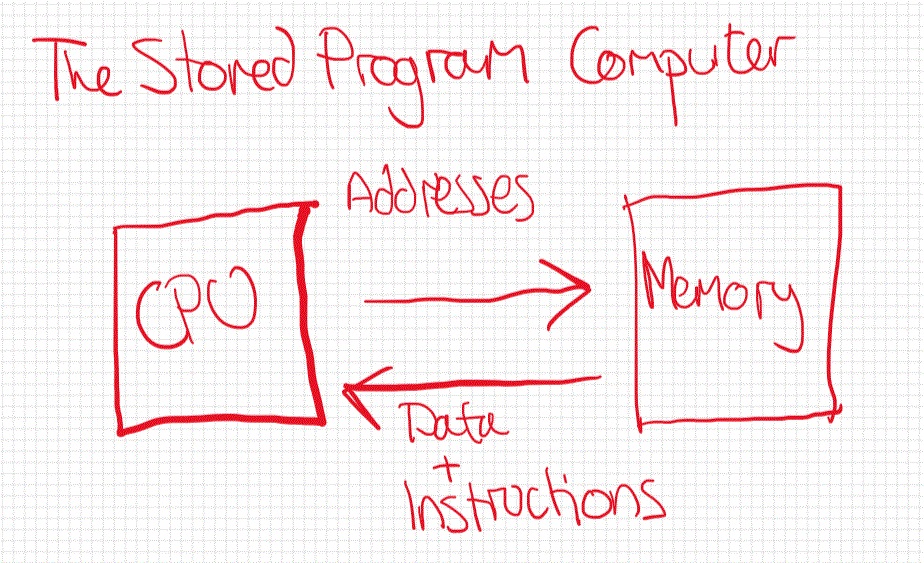 The Stored Program Computer
Addresses
CPU
Memory
Data
+
Instructions